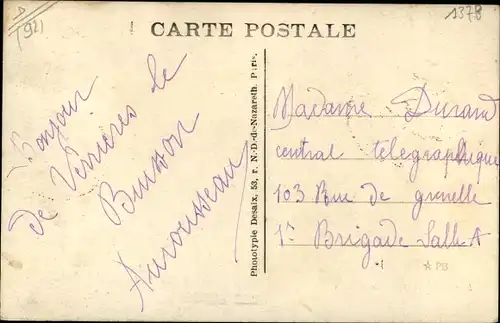 1921
1378
CARTE POSTALE
Bonjour
de Verrières le
Buisson
Aurousseau
Phototypie Desaix, 53, r. N.-D.-de-Nazareth. Paris.
Madame Durand
central télégraphique
103 Rue de grenelle
1re Brigade Salle A